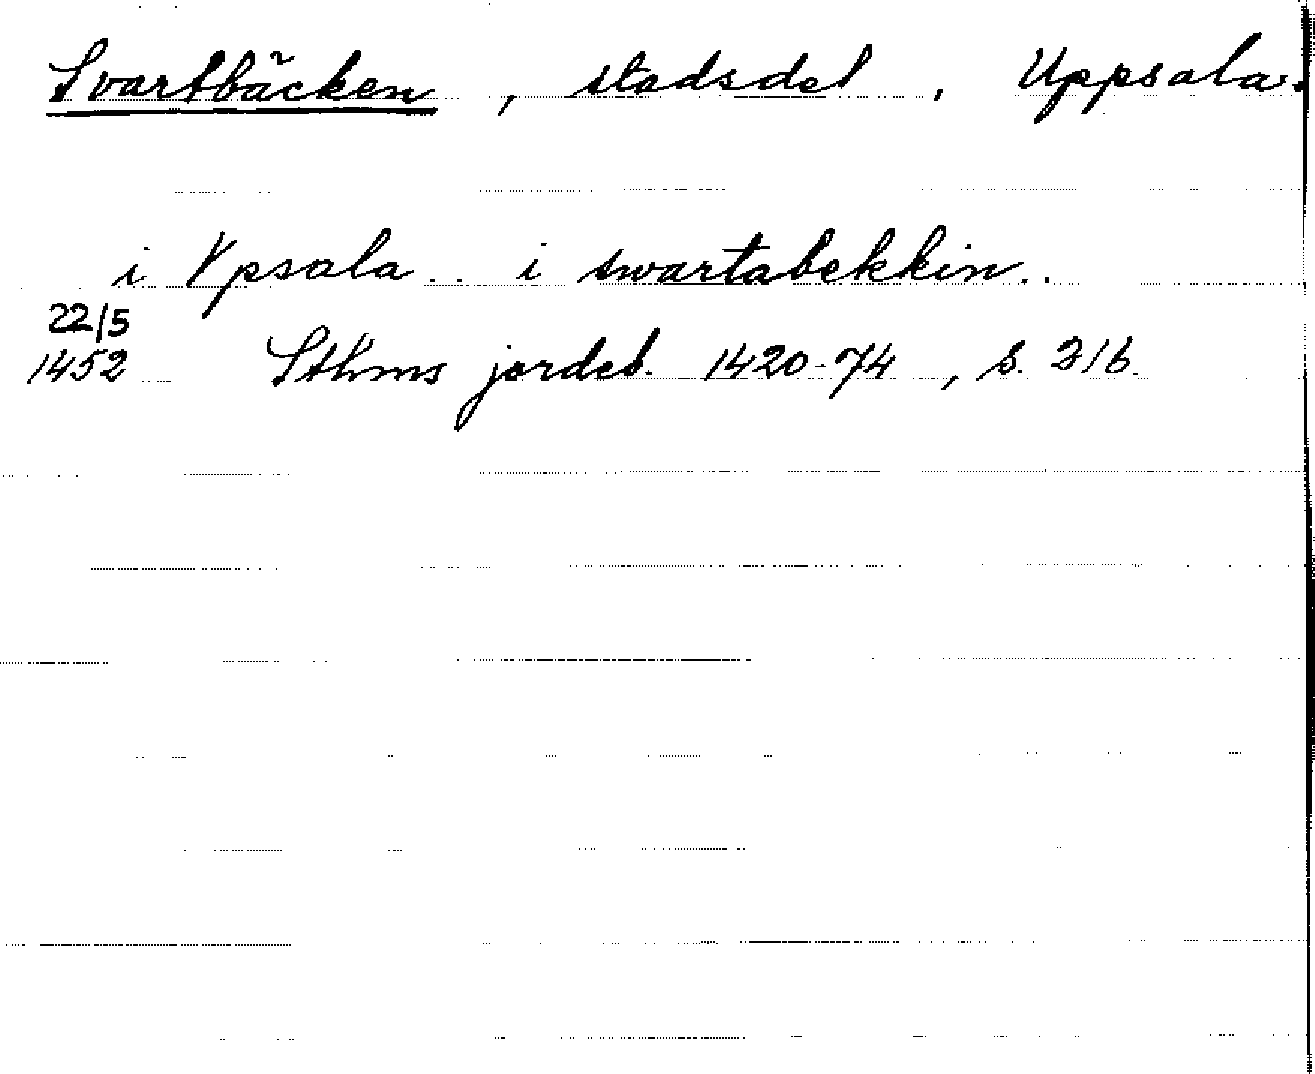 Svartbäcken, stadsdel. Uppsala.
i Vpsala.. i swartabekkin..
22/5
1452 Sthms jordeb. 1420-74, s. 316.